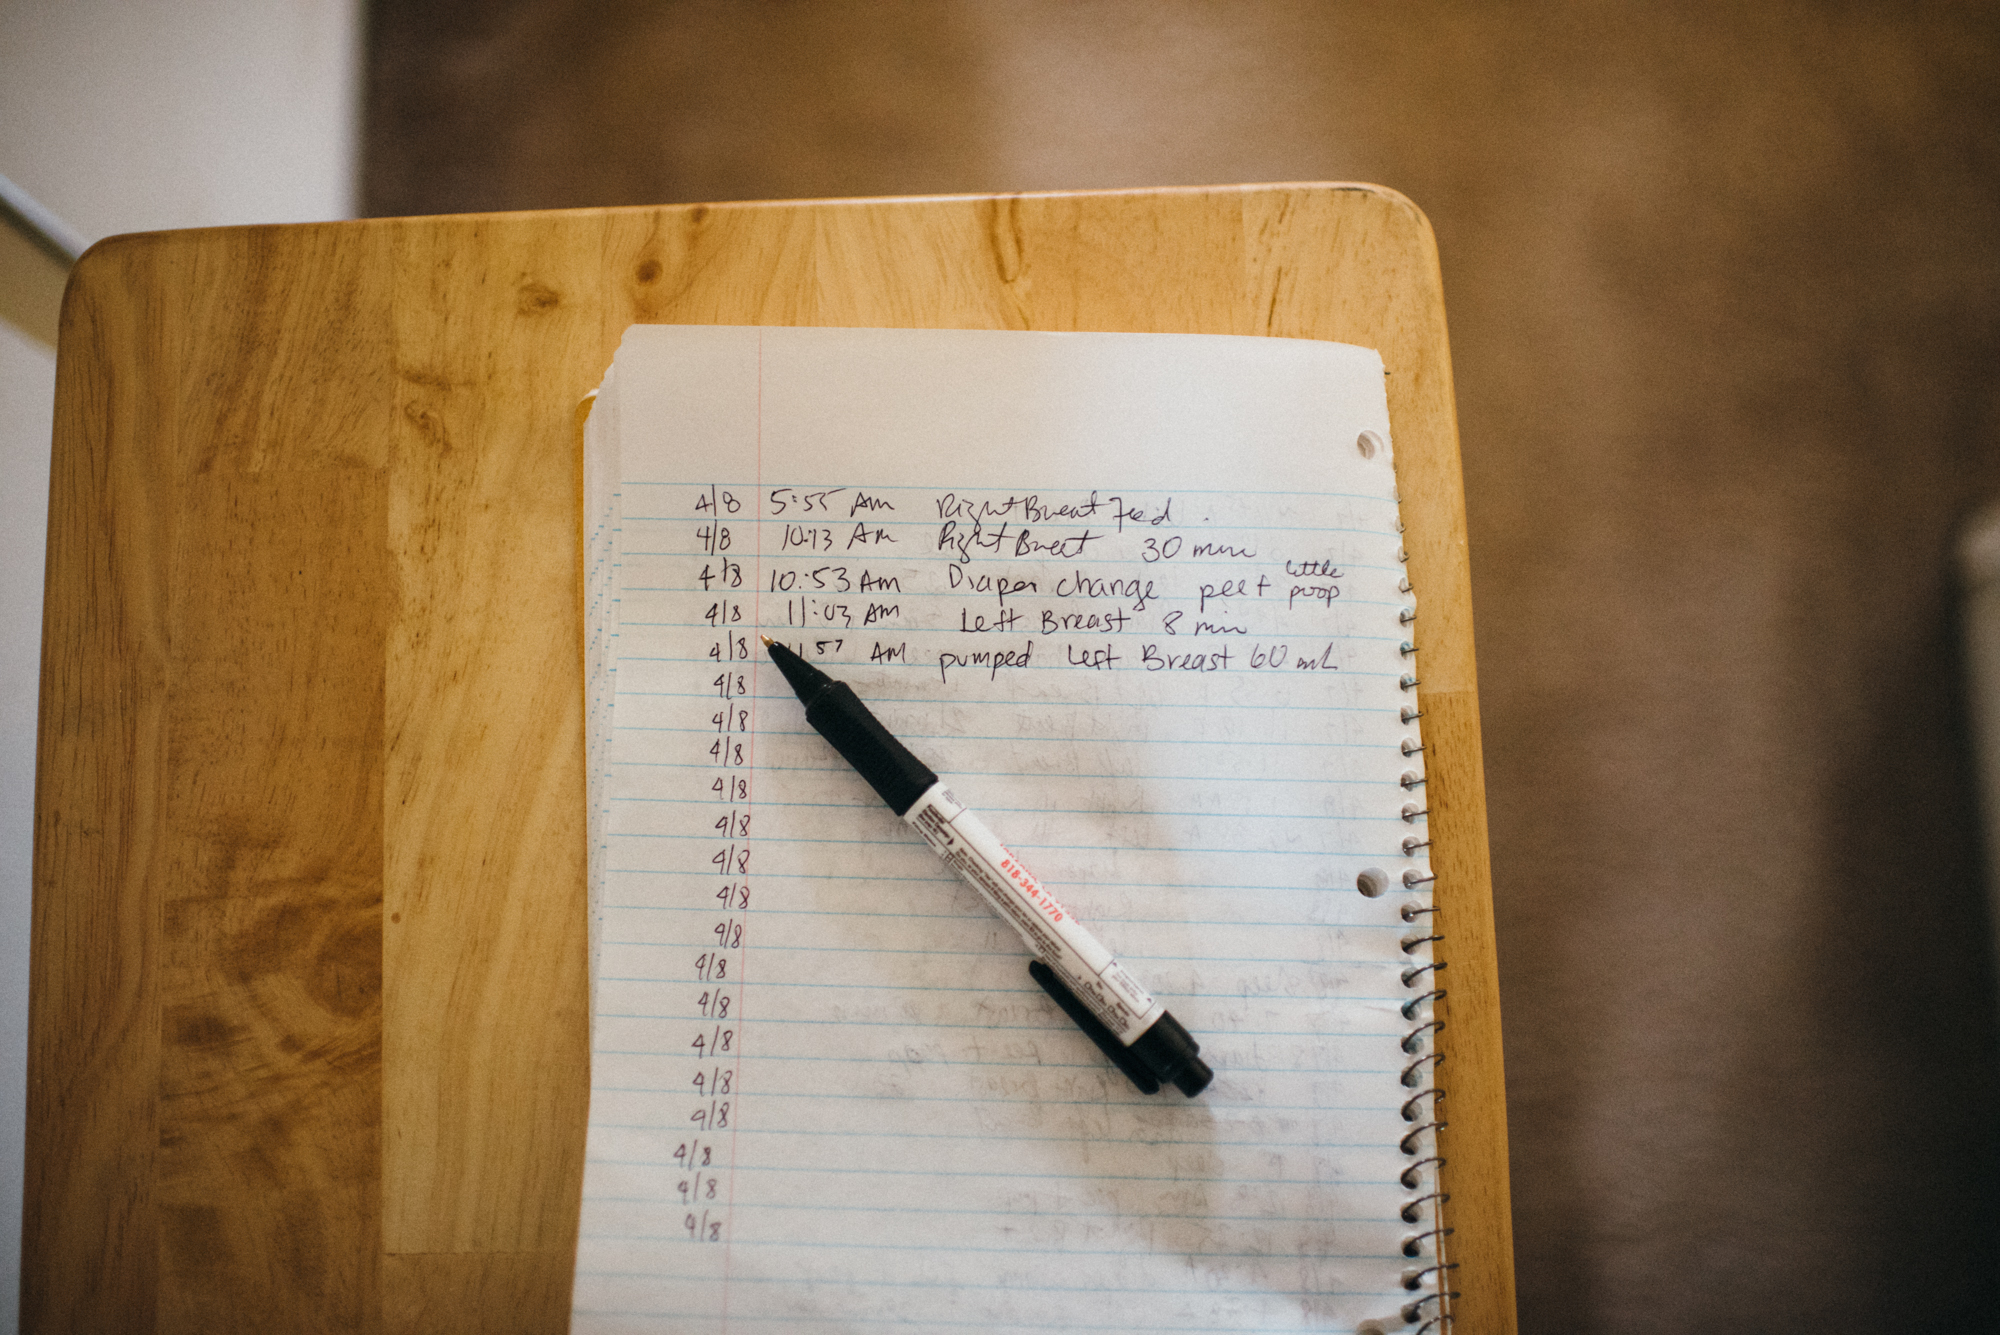 4/8 5:55 Am Right Breast Feed.
4/8 10:13 Am Right Breast 30 min
4/8 10:53 Am Diaper change pee + little poop
4/8 11:03 AM Left Breast 8 min
4/8 57 AM pumped Left Breast 60 mL
4/8
4/8
4/8
4/8
4/8
4/8
4/8
4/8
4/8
4/8
4/8
4/8
4/8
4/8
4/8
4/8
818-344-1770